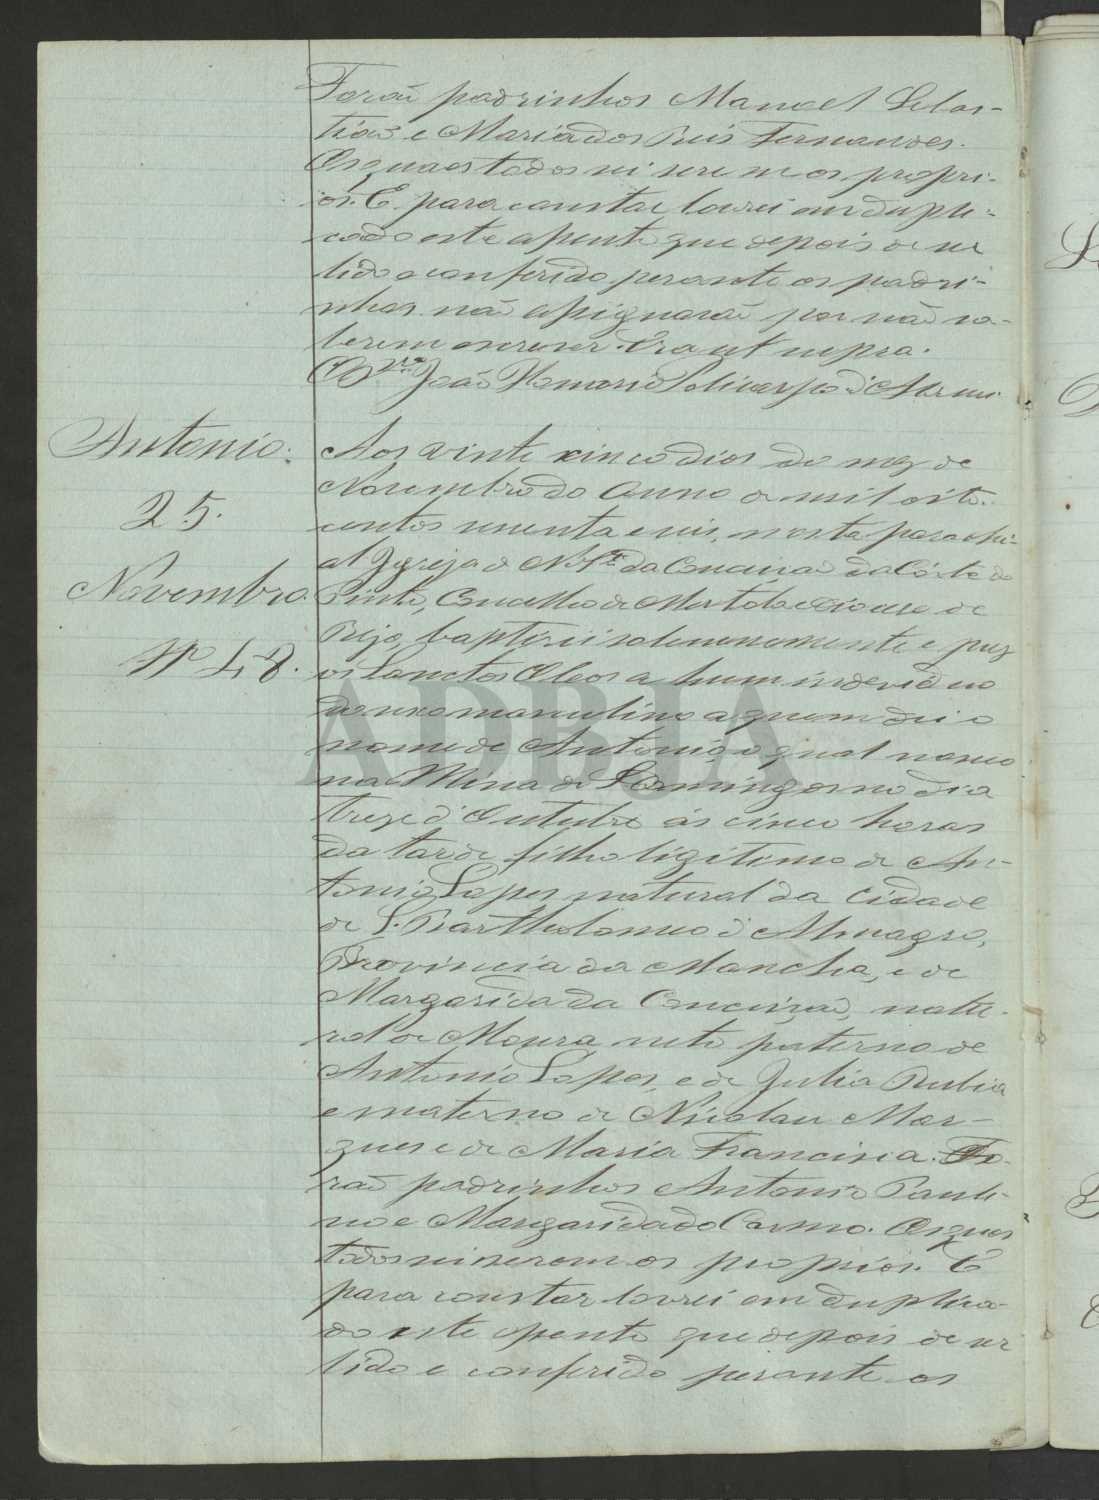 Forão padrinhos Manoel Sebas-
tião e Maria dos Reis Fernandes.
Os quaes todos sei serem os propri-
os. E para constar lavrei em dupli-
cado este assento que depois de ser
lido e conferido perante os padri-
nhos não assignarão por não sa-
berem escrever. Era ut supra.
O Pr.or João Honorio Policarpo d'Abreu
Antonio.
25.
Novembro
Nº 48.
Aos vinte cinco dias do mez de
Novembro do Anno de mil oito-
centos secenta e seis, nesta parochi-
al Igreja de N. Sr.ª da Conceição da Côrte do
Pinto, Concelho de Mertola e Diocese de
Beja, baptizei solemnemente e puz
os Sanctos Oleos a hum individuo
do sexo masculino a quem dei o
nome de Antonio, o qual nasceo
na Mina de S. Domingos no dia
treze d'Outubro ás cinco horas
da tarde filho ligitimo de An-
tonio Lopes, natural da Cidade
de S. Bartholomeo d'Almagro,
Provincia da Mancha, e de
Margarida da Conceição, natu-
ral de Moura neto paterno de
Antonio Lopes, e de Julia Rubia
e materno de Nicolau Mar-
ques e de Maria Francisca. Fo-
rão padrinhos Antonio Pauli-
no e Margarida do Carmo. Os quaes
todos sei serem os proprios. E
para constar lavrei em duplica-
do este assento que depois de ser
lido e conferido perante os
ADBJA